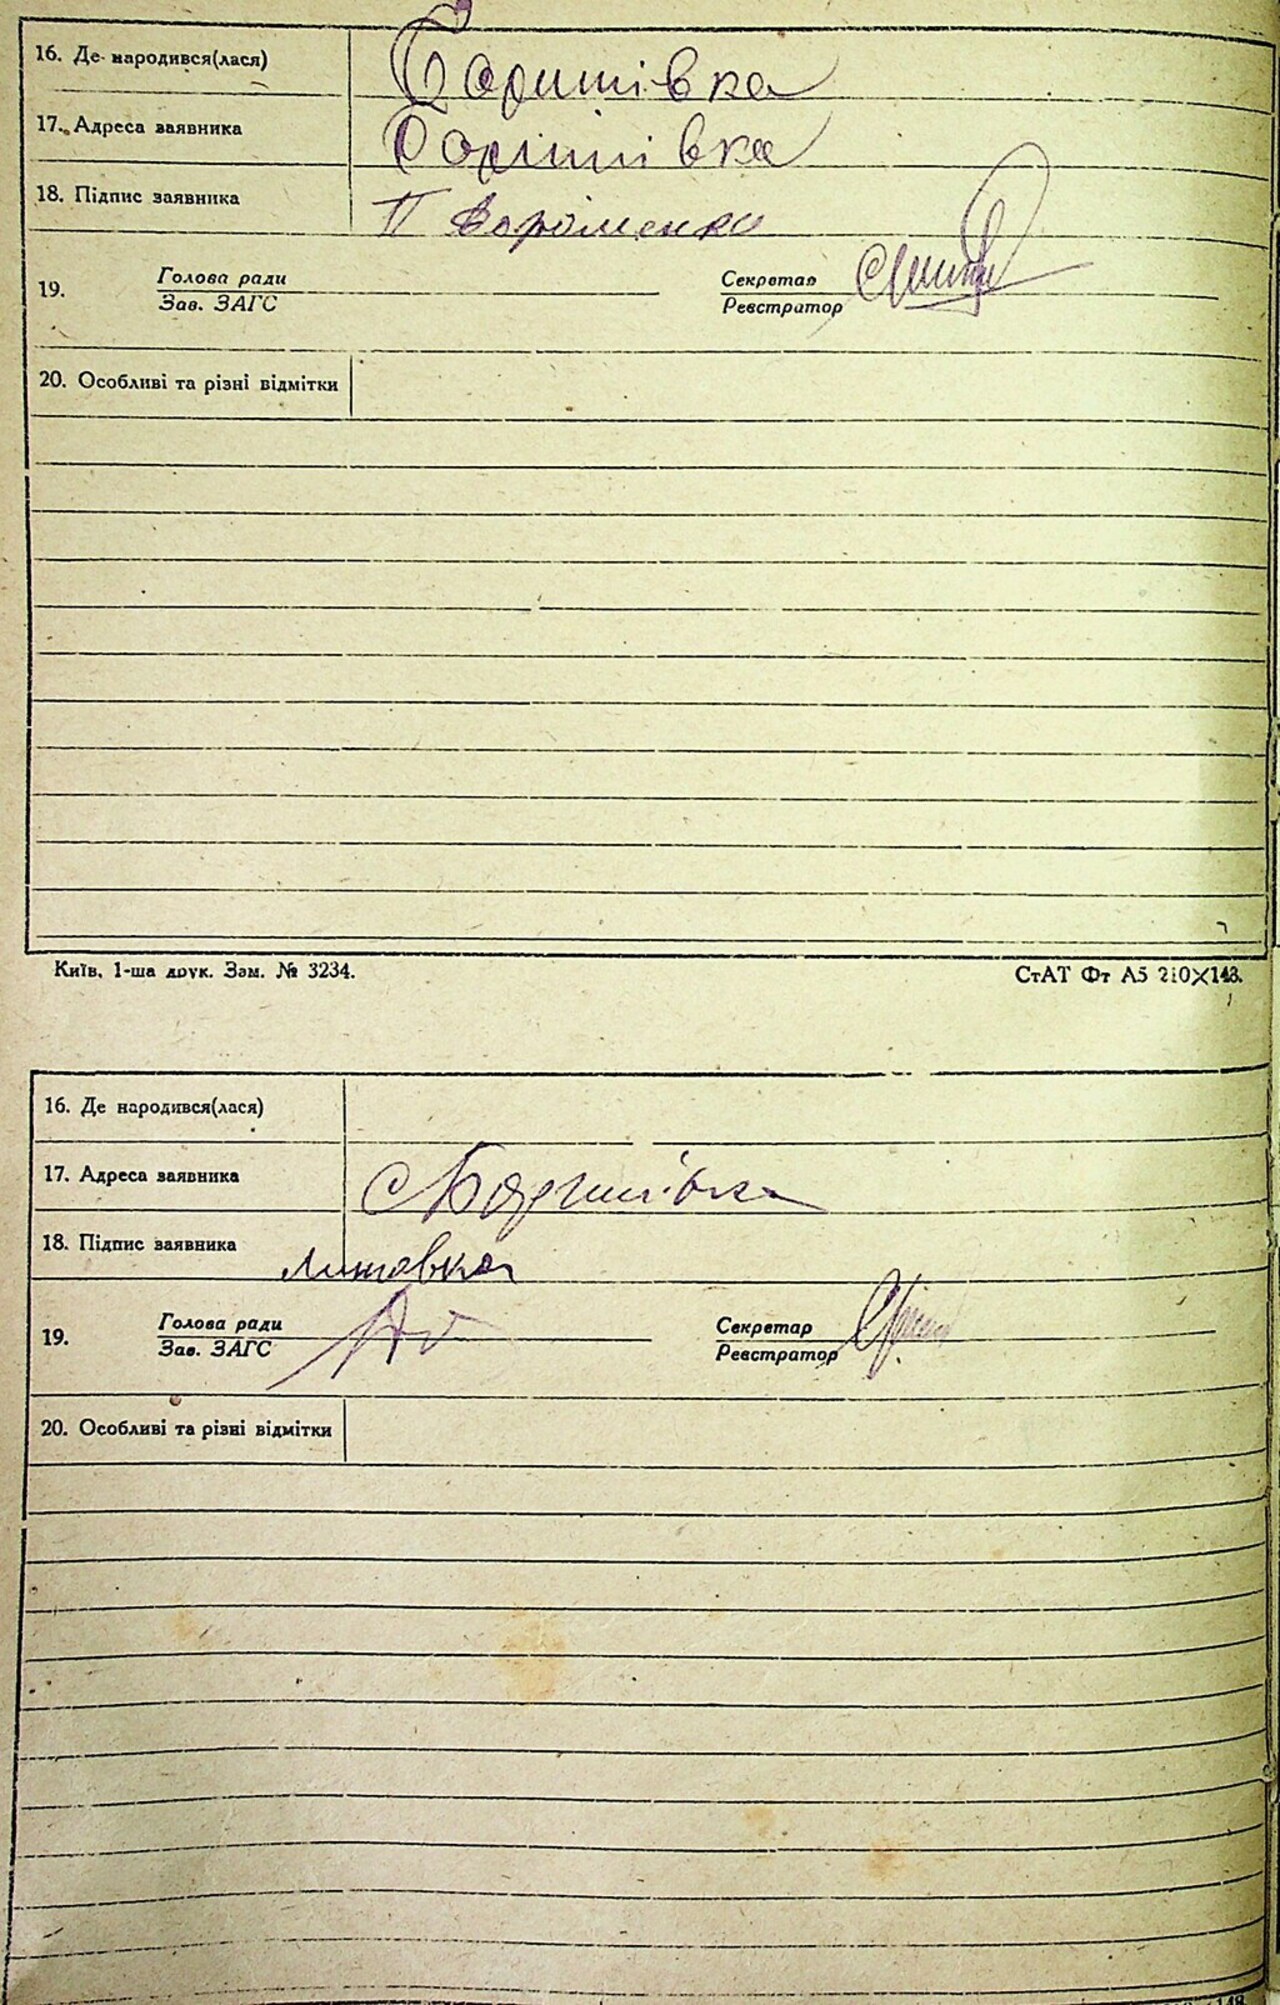 16. Де народився(лася) Баришівка
17. Адреса заявника Баришівка
18. Підпис заявника П
19. Голова ради Секретар
Зав. ЗАГС Реєстратор
20. Особливі та різні відмітки
Київ, 1-ша друк. Зам. № 3234. СтАТ Фт А5 210×148.
16. Де народився(лася)
17. Адреса заявника с Баришівка
18. Підпис заявника Литовка
19. Голова ради Секретар
Зав. ЗАГС Реєстратор
20. Особливі та різні відмітки